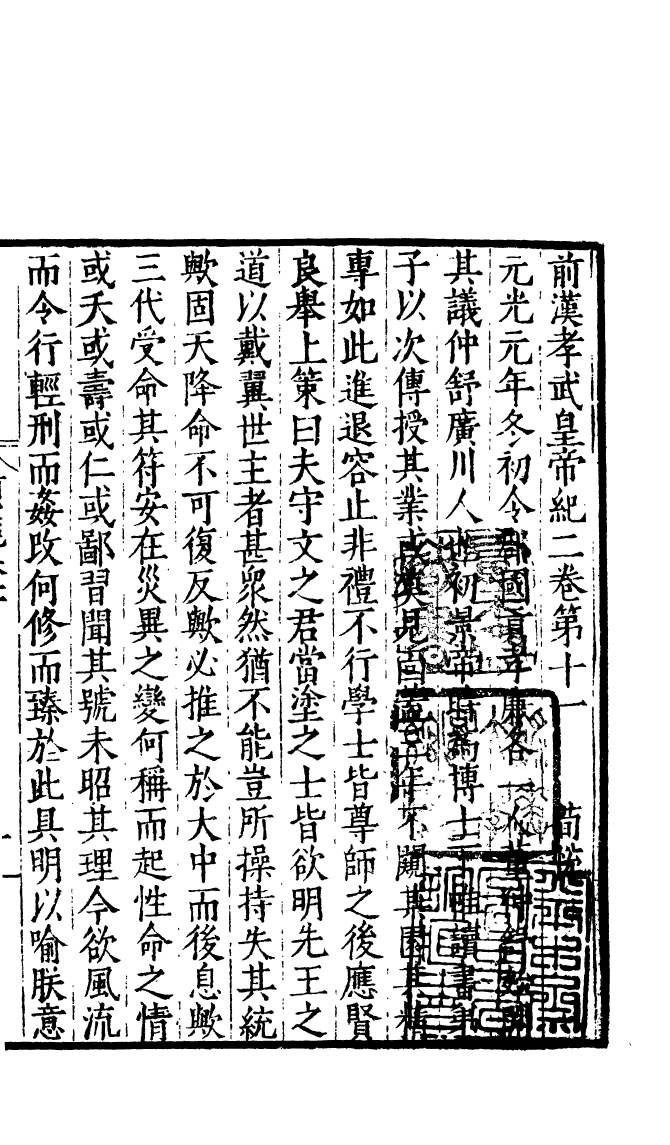 前漢孝武皇帝紀二卷第十一　荀悅
元光元年冬初令郡國貢孝廉各一人董仲舒
其議仲舒廣川人也初景帝時為博士下帷讀書弟
子以次傳授其業或莫見面蓋三年不闚其園其精
專如此進退容止非禮不行學士皆尊師之後應賢
良舉上策曰夫守文之君當塗之士皆欲明先王之
道以戴翼世主者甚衆然猶不能豈所操持失其統
歟固天降命不可復反歟必推之於大中而後息歟
三代受命其符安在災異之變何稱而起性命之情
或夭或壽或仁或鄙習聞其號未昭其理今欲風流
而令行輕刑而姦改何修而臻於此具明以喻朕意